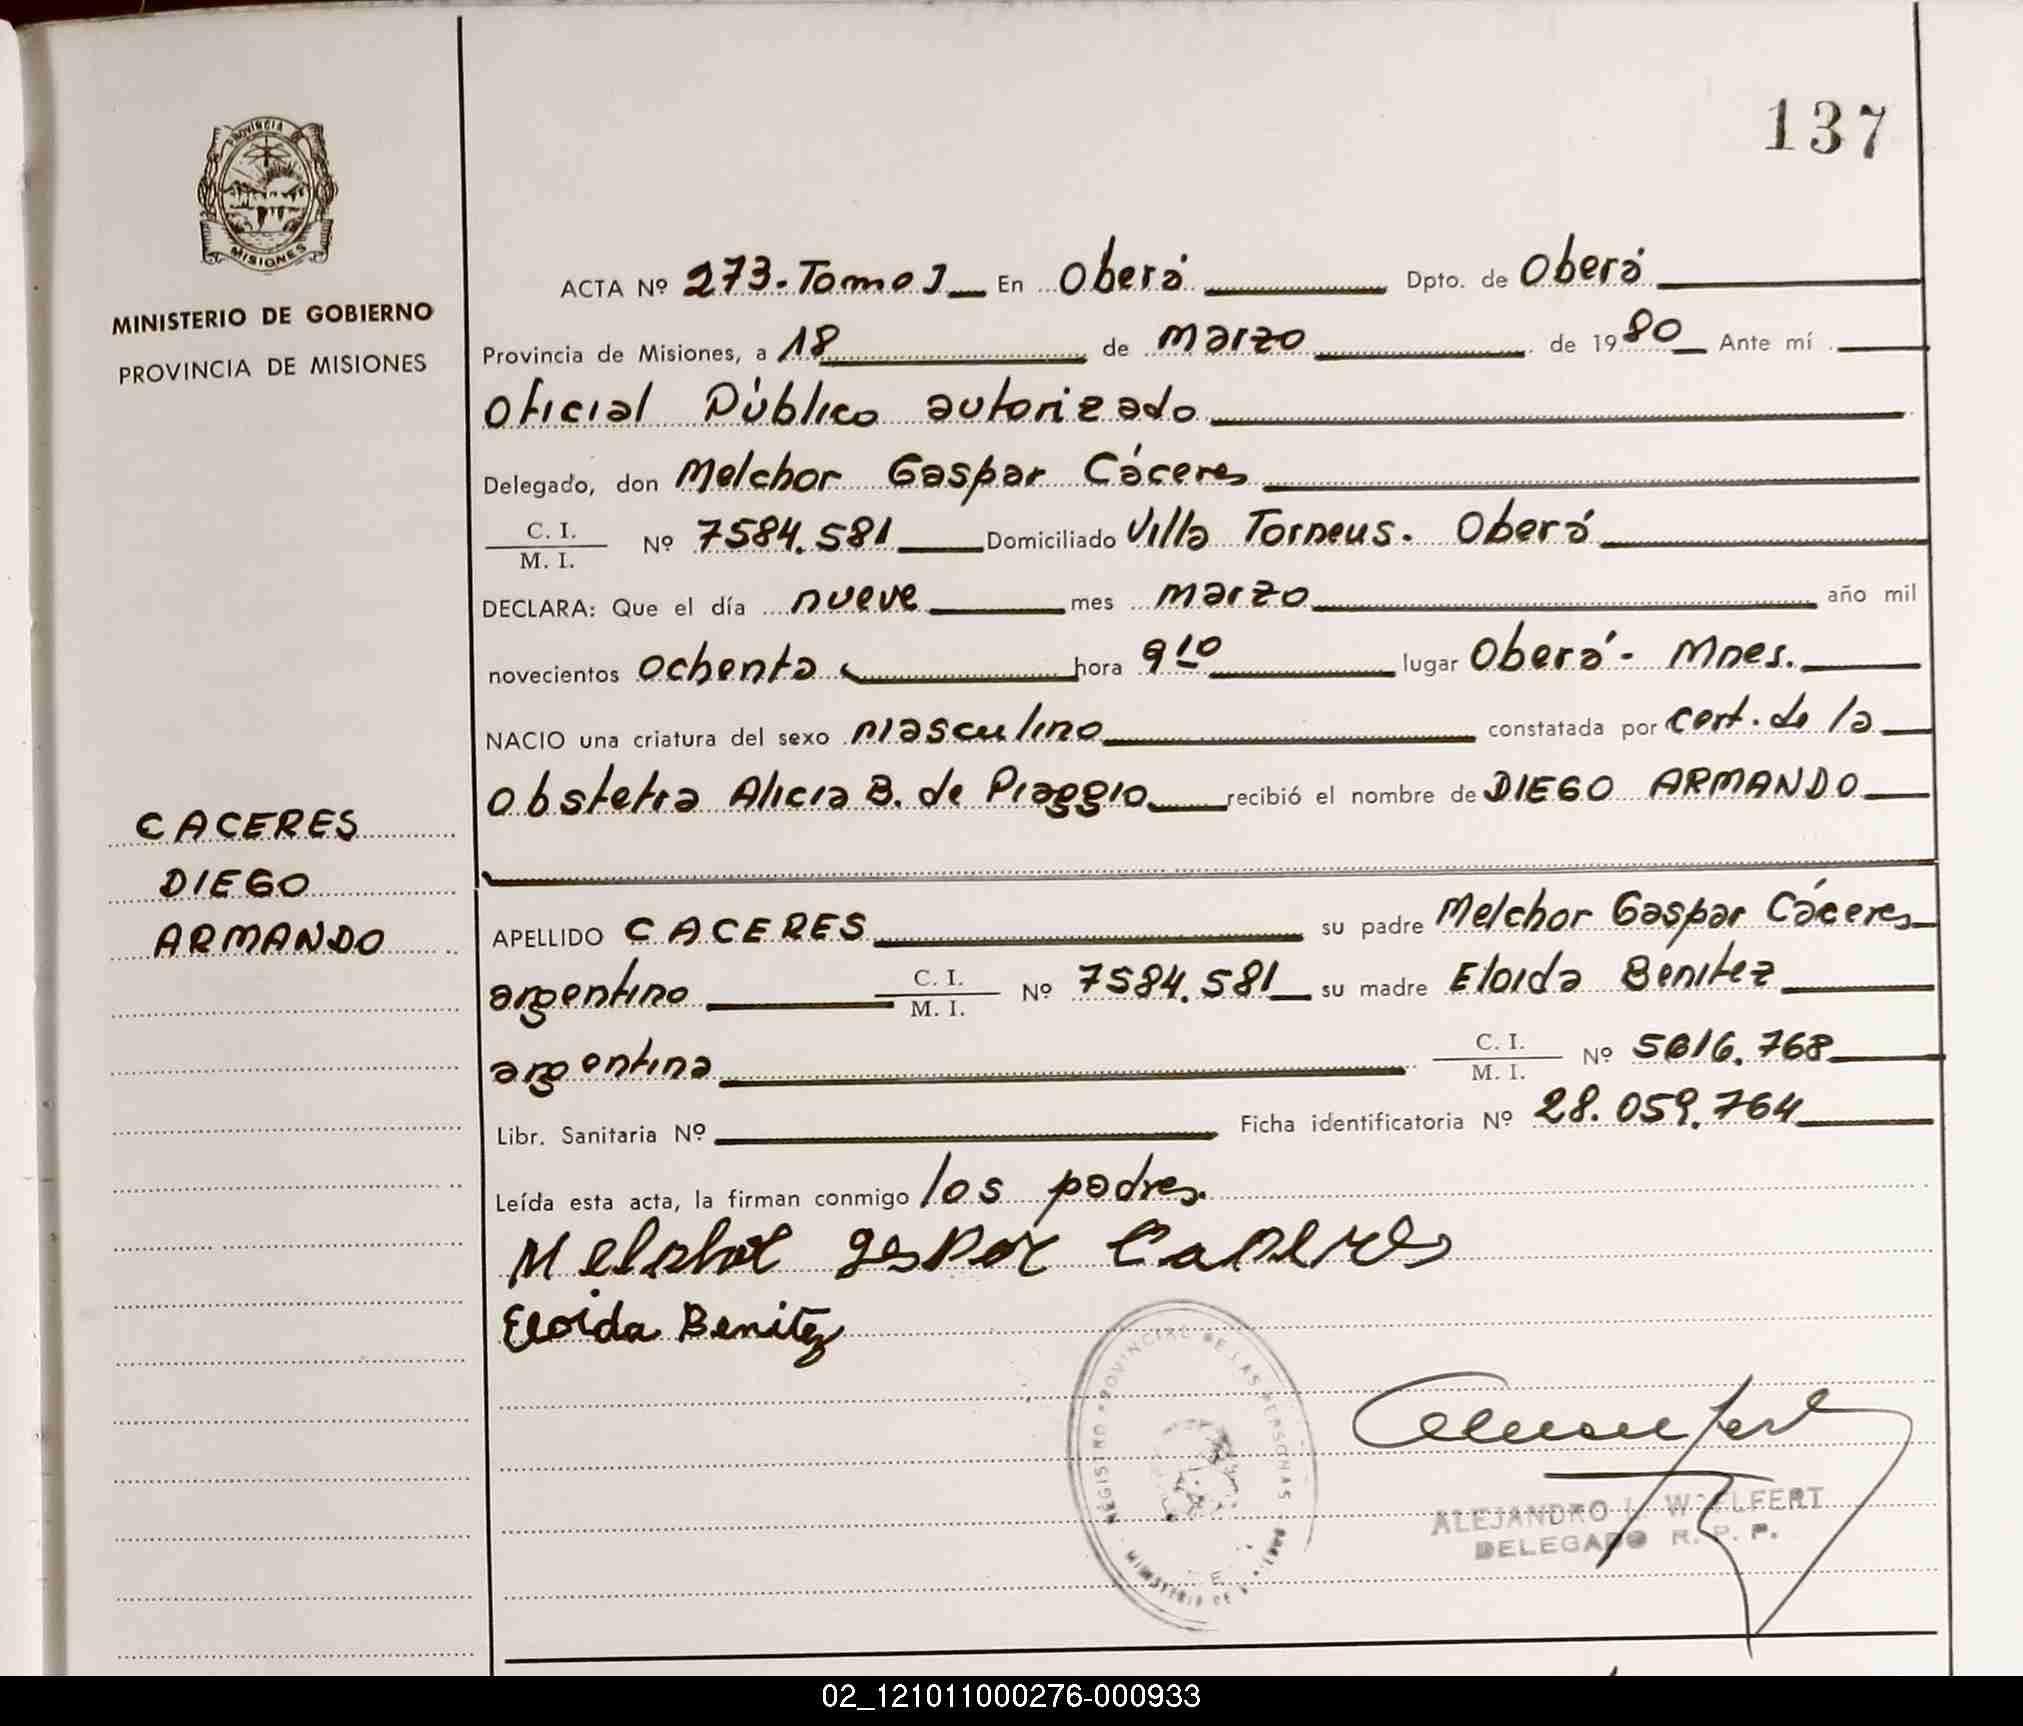 137
PROVINCIA
MISIONES
MINISTERIO DE GOBIERNO
PROVINCIA DE MISIONES
CACERES
DIEGO
ARMANDO
ACTA Nº 273. Tomo I En Oberá Dpto. de Oberá
Provincia de Misiones, a 18 de marzo de 1980 Ante mí
Oficial Público autorizado
Delegado, don Melchor Gaspar Cáceres
C. I.
M. I. Nº 7584.581 Domiciliado Villa Torneus. Oberá
DECLARA: Que el día nueve mes marzo año mil
novecientos ochenta hora 9 10 lugar Oberá - Mnes.
NACIO una criatura del sexo masculino constatada por cert. de la
obstetra Alicia B. de Piaggio recibió el nombre de DIEGO ARMANDO
APELLIDO CACERES su padre Melchor Gaspar Cáceres
argentino C. I.
M. I. Nº 7584.581 su madre Eloida Benitez
argentina C. I.
M. I. Nº 5616.768
Libr. Sanitaria Nº Ficha identificatoria Nº 28.059.764
Leída esta acta, la firman conmigo los padres.
Melchor gaspar Caceres
Eloida Benitez
REGISTRO PROVINCIAL DE LAS PERSONAS
MINISTERIO DE
ALEJANDRO L. WOLFERT
DELEGADO R. P. P.
02_121011000276-000933